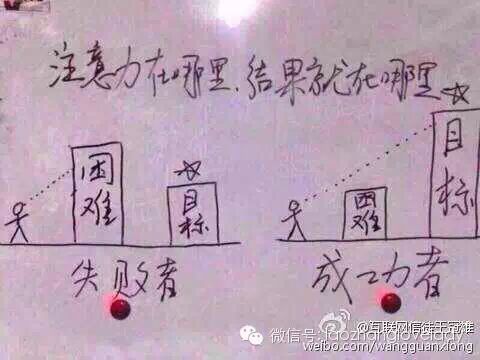 注意力在哪里.结果就在哪里
困难
目标
困难
目标
失败者
成功者
微信号:laozhonglovelady
@互联网信徒王冠雄
weibo.com/wangguanxiong